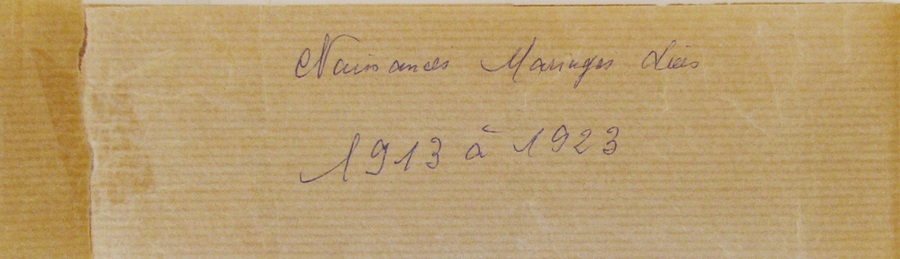 Naissances Mariages Décès
1913 à 1923